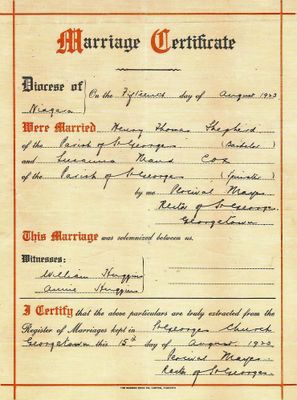 Marriage Certificate
Diocese of
Niagara
On the Fifteenth day of August 1923
Were Married Henry Thomas Shepherd
of the Parish of St Georges (Bachelor)
and Susanna Maud Cox
of the Parish of St Georges (Spinster)
by me Percival Mayes
Rector of St Georges
Georgetown
This Marriage was solemnized between us.
Witnesses:
William Huggins
Annie Huggins
I Certify that the above particulars are truly extracted from the
Register of Marriages kept in St Georges Church
Georgetown this 15th day of August 1923
Percival Mayes
Rector of St Georges